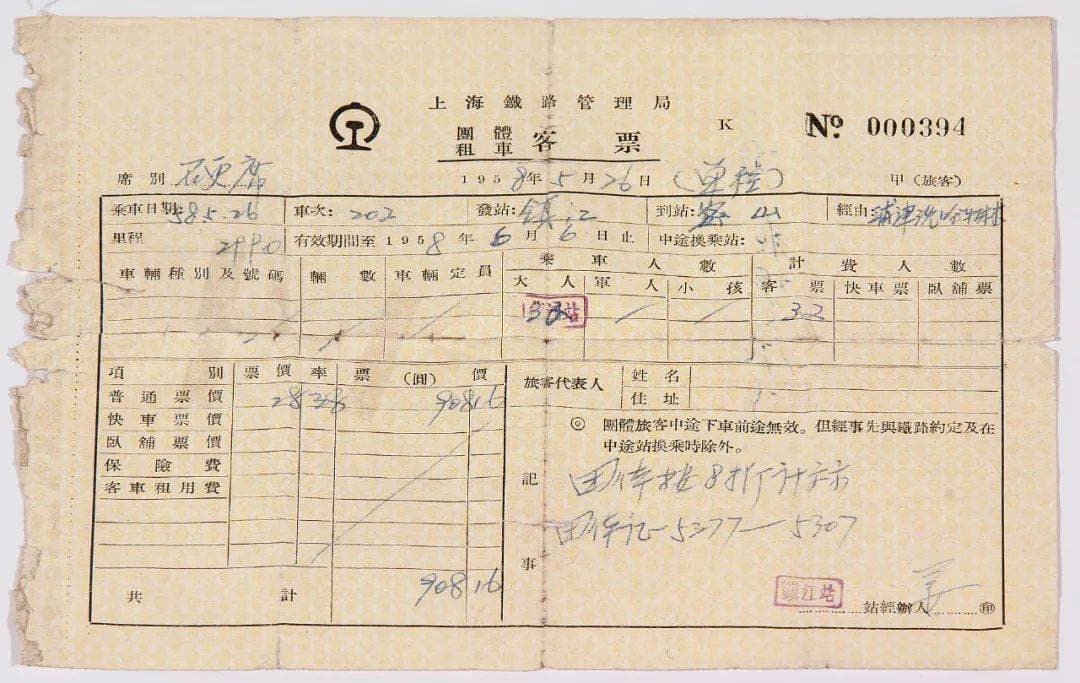 上海鐵路管理局
團體
租車 客票 K № 000394
席別 硬席 1958年5月26日 (單程) 甲(旅客)
乘車日期 58.5.26 車次: 202 發站: 鎮江 到站: 密山 經由: 浦津沈哈牡林
里程 2990 有效期間至1958年6月6日止 中途換乘站:
車輛種別及號碼 輛數 車輛定員 乘車人數 計費人數
大人 軍人 小孩 客票 快車票 臥舖票
32 32
項別 票價率 票(圓)價 旅客代表人 姓名
普通票價 2838 90816 住址
快車票價
臥舖票價
保險費
客車租用費
共計 90816
記事
◎ 團體旅客中途下車前途無效。但經事先與鐵路約定及在
中途站換乘時除外。
团体按8折計示
团体記—5377—5307
鎮江站
站經辦人 印